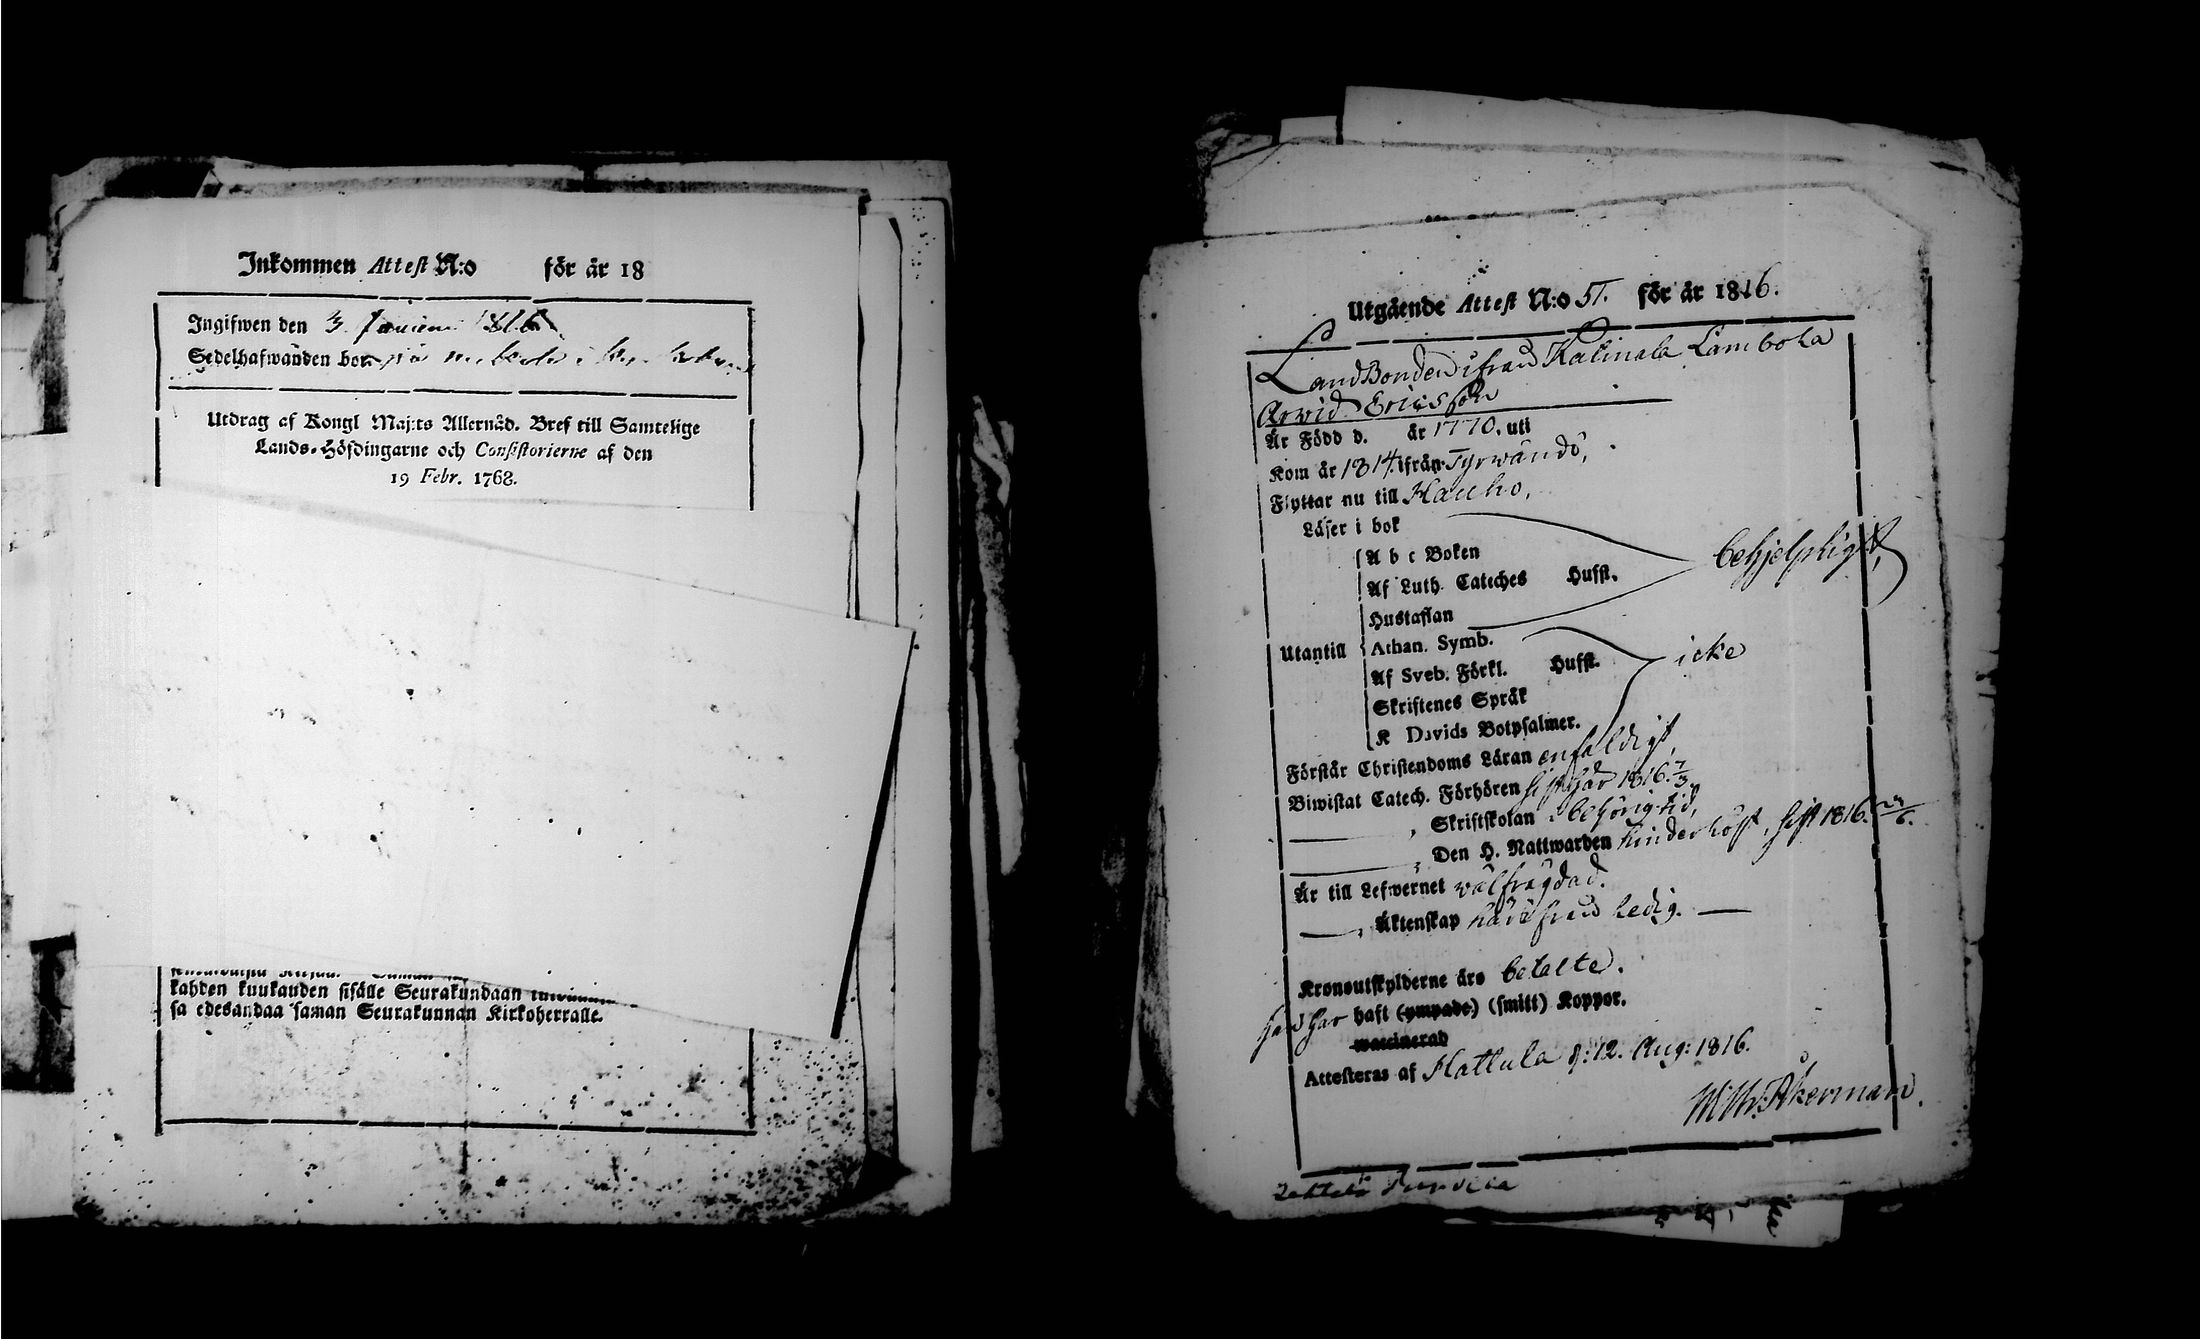 Inkommen Attest N:o för år 18
Ingifwen den 3 1816
Sedelhafwanden bor
Utdrag af Kongl Maj:ts Allernåd. Bref till Samtelige
Lands-Höfdingarne och Consistorierne af den
19 Febr. 1768.
kahden kuukauden sisälle Seurakundaan
sa edesandaa saman Seurakunnan Kirkoherralle.
Utgående Attest N:o 51. för år 1816.
LandBonden ifrån Katinala Lambola
Arvid Ericsson
Är Född d. år 1770. uti
Kom år 1814. ifrån Tyrwändö,
Flyttar nu till Hauho,
Läser i bok
A b c Boken
Af Luth. Cateches Hufst.
behjelpligt,
Hustaflan
Utantill Athan. Symb.
Af Sveb. Förkl. Hufst.
icke
Skriftenes Språk
K Davids Botpsalmer.
Förstår Christendoms Läran enfaldigt,
Biwistat Catech. Förhören sist här 1816. 7/3
Skriftskolan i behörig tid,
Den H. Nattwarden sist 1816. 24/6.
Är till Lefwernet wälfrägdad.
Äktenskap härifrån ledig.
Kronoutskylderne äro betalte.
han har haft (ympade) (smitt) Koppor.
waccinerad
Attesteras af Hattula d: 12. Aug: 1816.
Åkerman.